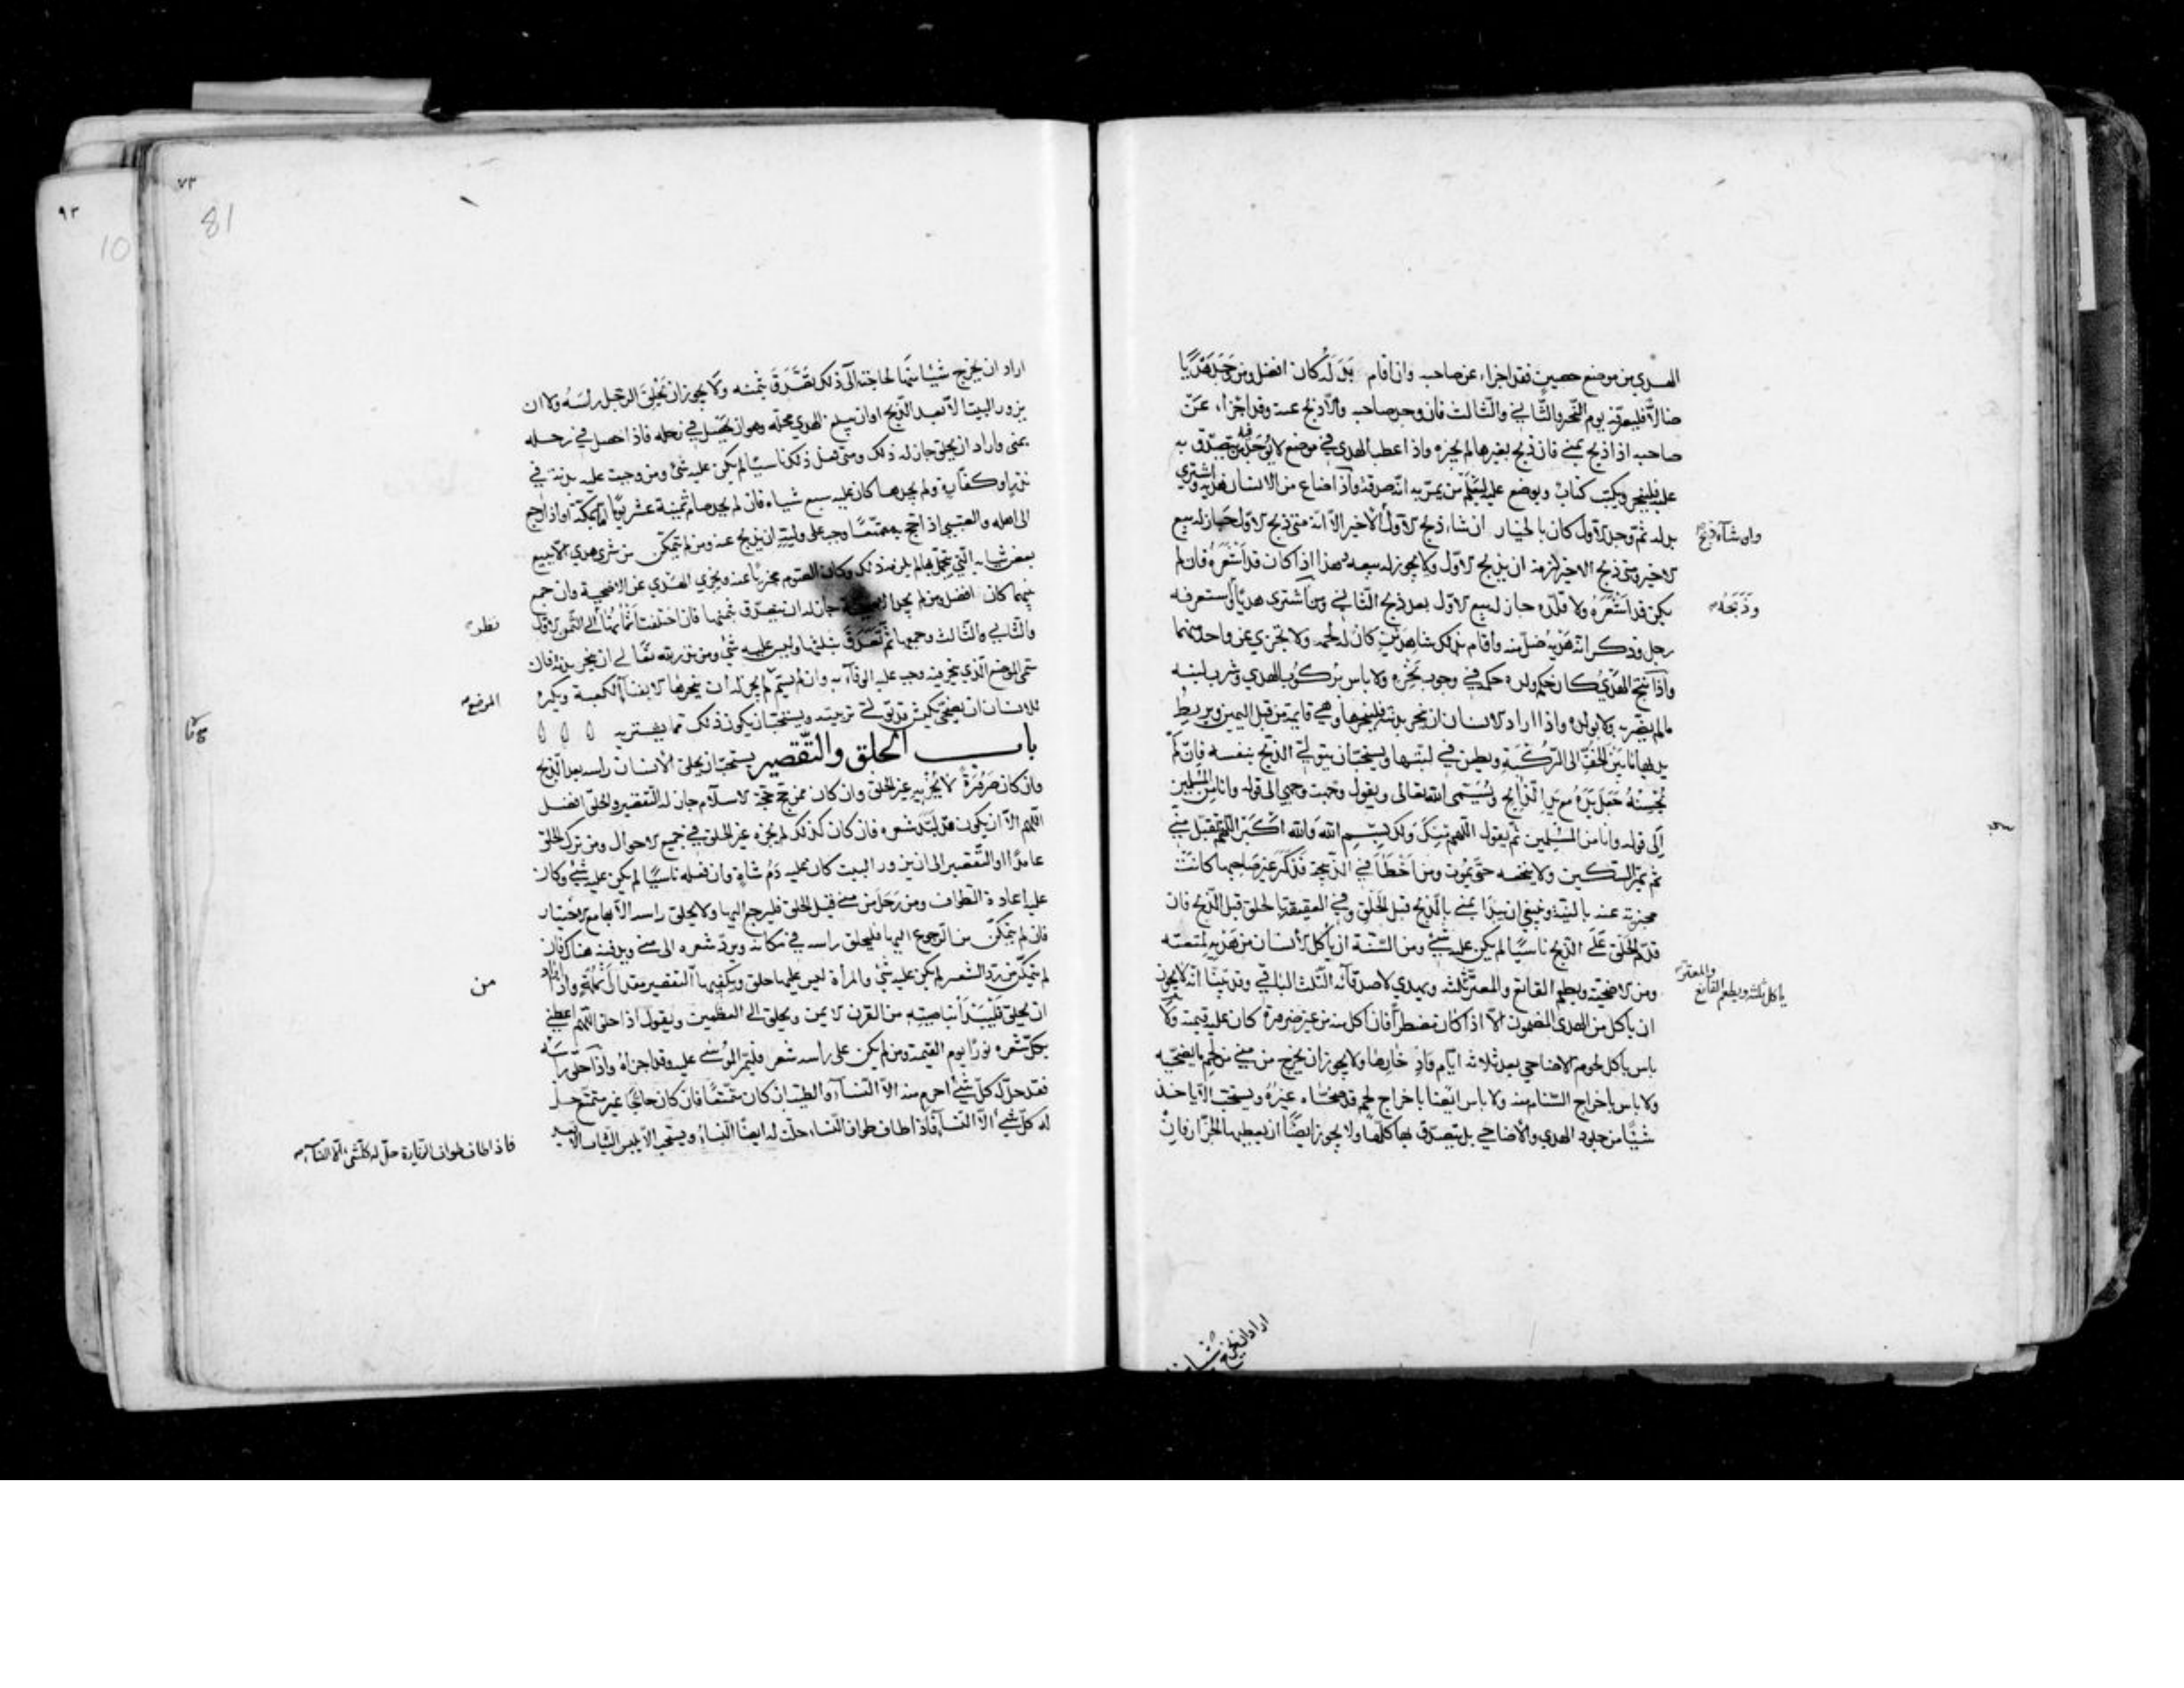 الهدي من موضع حصين فقد اجزاء عن صاحبه وان اقام بدله كان افضل ومن وجد هديا
ضالا فليعرفه يوم النحر والثاني والثالث فان وجد صاحبه والا ذبح عنه وقد اجزاء عن
صاحبه اذا ذبح بمنى فان ذبح بغيرها لم يجزه واذا عطب الهدي في موضع لا يوجد فيه من يتصدق به
عليه فلينحر ويكتب كتاب ويوضع عليه ليعلم من يمر به انه صدقة واذا ضاع من الانسان هديه واشترى
بدله ثم وجد الاول كان بالخيار ان شاء ذبح الاول الا انه متى ذبح الاول جاز له بيع
وان شاء ذبح
الاخير ومتى ذبح الاخير لزمه ان يذبح الاول ولا يجوز له بيعه وهذا اذا كان قد اشعره فان لم
يكن قد اشعره ولا قلده جاز له بيع الاول بعد ذبح الثاني ومن اشترى هديا واستعرفه
وذبحه
رجل وذكر انه هديه ضل منه واقام بذلك شاهدين كان له لحمه ولا تجزي عن واحد منهما
واذا نتج الهدي كان حكم ولده حكمه في وجوب نحره ولا باس بركوب الهدي وشرب لبنه
مالم يضر به ولا بولده واذا اراد الانسان ان ينحر بدنة فلينحرها وهي قايمة من قبل اليمين ويربط
يديها ما بين الخف الى الركبة ويطعن في لبتها ويستحب ان يتولى الذبح بنفسه فان لم
يحسنه جعل يده مع يد الذابح ويسمي الله تعالى ويقول وجهت وجهي الى قوله وانا من المسلمين
الى قوله وانا من المسلمين ثم يقول اللهم منك ولك بسم الله والله اكبر اللهم تقبل مني
ثم يمر السكين ولا ينخعه حتى يموت ومن اخطا في الذبيحة فذكر غير صاحبها كانت
مجزية عنه بالنية وينبغي ان يبدا بمنى بالذبح قبل الحلق وفي العقيقة بالحلق قبل الذبح فان
قدم الحلق على الذبح ناسيا لم يكن عليه شئ ومن السنة ان ياكل الانسان من هديه لمتعته
ومن الاضحية ويطعم القانع والمعتر ثلثه ويهدي لاصدقائه الثلث الباقي وقد بينا انه لا يجوز
ياكل ثلثه ويطعم القانع والمعتر
ان ياكل من الهدي المضمون الا اذا كان مضطرا فان اكل منه من غير ضرورة كان عليه قيمته ولا
باس باكل لحوم الاضاحي بعد ثلاثة ايام وادخارها ولا يجوز ان يخرج من منى من لحم ما يضحيه
ولا باس باخراج السنام منه ولا باس ايضا باخراج لحم قد ضحاه غيره ويستحب الا ياخذ
شيئا من جلود الهدي والاضاحي بل يتصدق بها كلها ولا يجوز ايضا ان يعطيها الجزار فان
اراد ان يخرج شيئا
٧٣
81
٩٣
10
اراد ان يخرج شيئا منها لحاجته الى ذلك تصدق بثمنه ولا يجوز ان يحلق الرجل راسه ولا ان
يزور البيت الا بعد الذبح او ان يبلغ الهدي محله وهو ان يحصل في رحله فاذا حصل في رحله
بمنى واراد ان يحلق جاز له ذلك ومتى فعل ذلك ناسيا لم يكن عليه شئ ومن وجبت عليه بدنة في
نذر او كفارة ولم يجدها كان عليه سبع شياه فان لم يجد صام ثمنية عشر يوما اما بمكة او اذا رجع
الى اهله والصبي اذا حج به متمتعا وجب على وليه ان يذبح عنه ومن لم يتمكن من شرى هدي الا ببيع
بعض ثيابه التي يتجمل بها لم يلزمه ذلك وكان الصوم مجزيا عنه ويجزي الهدي عن الاضحية وان جمع
بينهما كان افضل ومن لم يجد الاضحية جاز له ان يتصدق بثمنها فان اختلفت اثمانها الى الثمن الاول
نظر
والثاني والثالث وجمعها ثم تصدق بثلثها وليس عليه شئ ومن نذر لله تعالى ان ينحر بدنة فان
سمى الموضع الذي ينحر فيه وجب عليه الوفاء به وان لم يسم لم يجز له ان ينحرها الا بفناء الكعبة ويكره
الموضع
للانسان ان يضحي بكبش قد تولى تربيته ويستحب ان يكون ذلك مما يشتريه
باب الحلق والتقصير يستحب ان يحلق الانسان راسه بعد الذبح
وان كان صرورة لا يجزيه غير الحلق وان كان ممن حج حجة الاسلام جاز له التقصير والحلق افضل
اللهم الا ان يكون قد لبد شعره فان كان كذلك لم يجزه غير الحلق في جميع الاحوال ومن ترك الحلق
عامدا او التقصير الى ان يزور البيت كان عليه دم شاة وان فعله ناسيا لم يكن عليه شئ وكان
عليه اعادة الطواف ومن رحل من منى قبل الحلق فليرجع اليها ولا يحلق راسه الا بها مع الاختيار
فان لم يتمكن من الرجوع اليها فليحلق راسه في مكانه ويرد شعره الى منى ويدفنه هناك فان
لم يتمكن من رد الشعر لم يكن عليه شئ والمراة ليس عليها حلق ويكفيها التقصير مقدار انملة واذا اراد
من
ان يحلق فليبدا بناصيته من القرن الايمن ويحلق الى العظمين ويقول اذا حلق اللهم اعطني
بكل شعره نورا يوم القيمة ومن لم يكن على راسه شعر فليمر الموسى عليه وقد اجزاه واذا حلق راسه
فقد حل له كل شئ احرم منه الا النساء والطيب ان كان متمتعا فان كان حاجا غير متمتع حل
له كل شئ الا النساء فاذا طاف طواف النساء حلت له ايضا النساء ويستحب الا يلبس الثياب الا بعد
فاذا طاف طواف الزيارة حل له كل شئ الا النساء